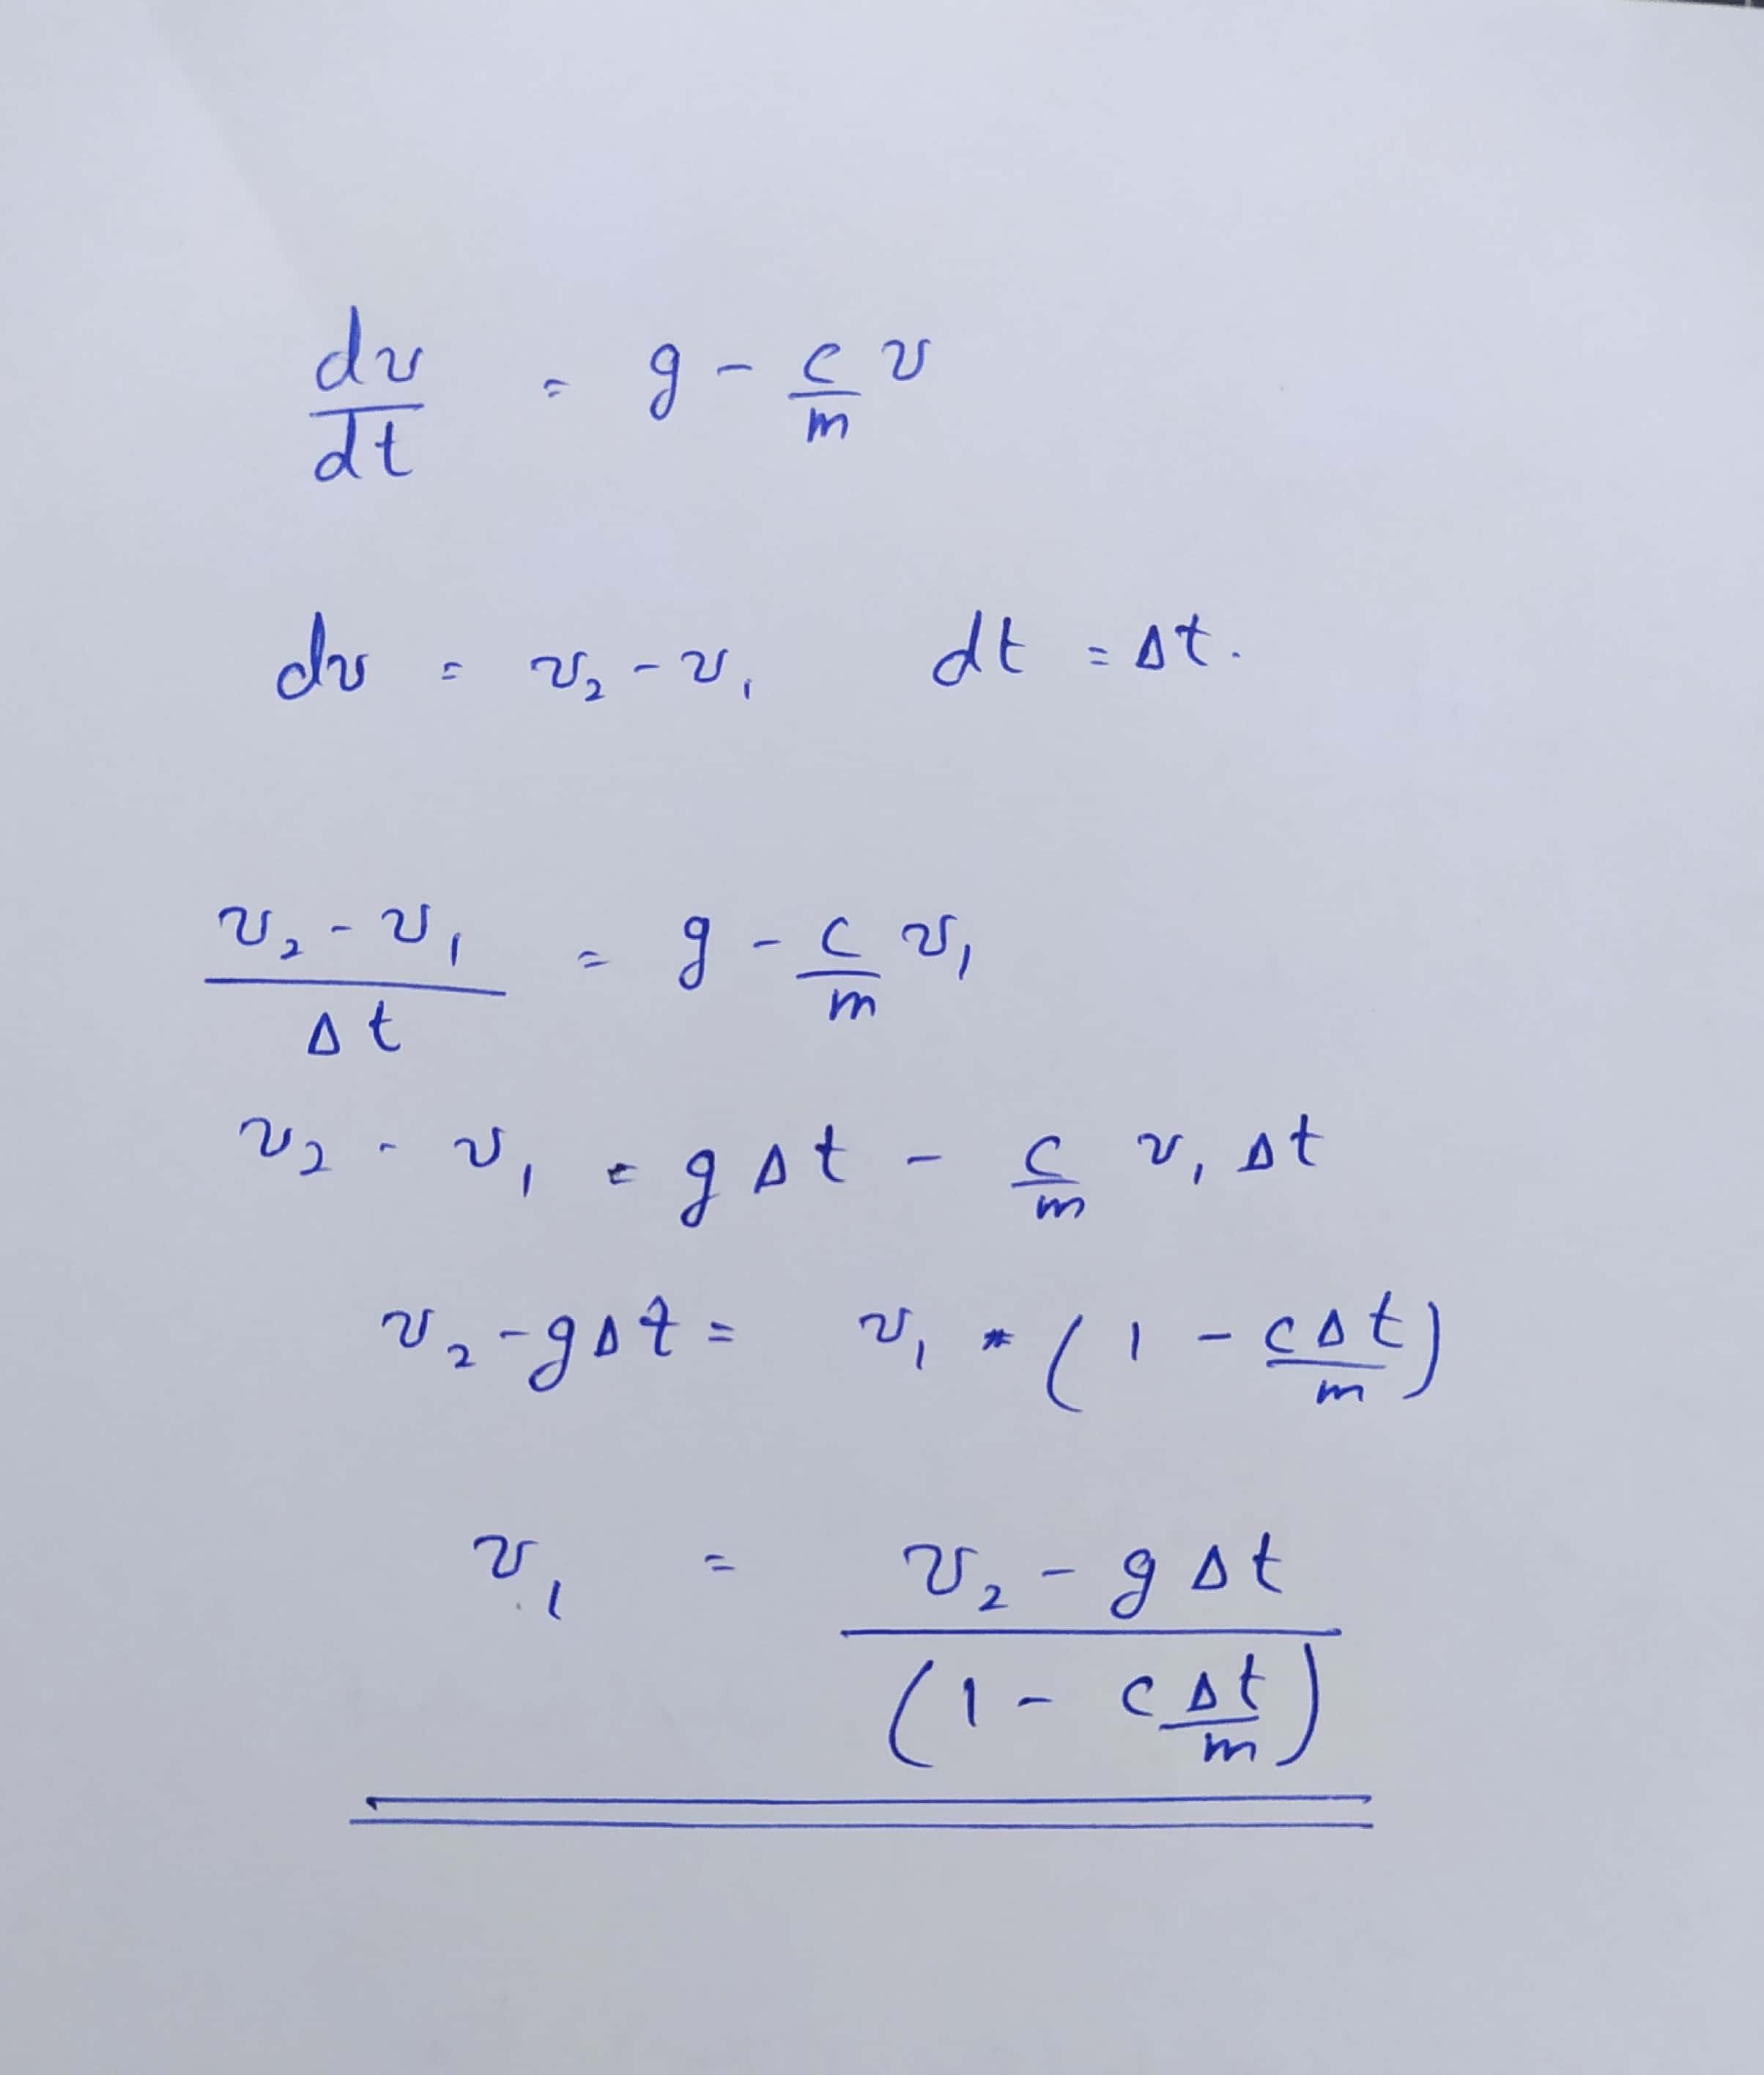 dv/dt = g - c/m v
dv = v₂ - v₁ dt = Δt.
(v₂ - v₁)/Δt = g - c/m v₁
v₂ - v₁ = g Δt - c/m v₁ Δt
v₂ - gΔt = v₁ * (1 - cΔt/m)
v₁ = (v₂ - g Δt)/(1 - cΔt/m)